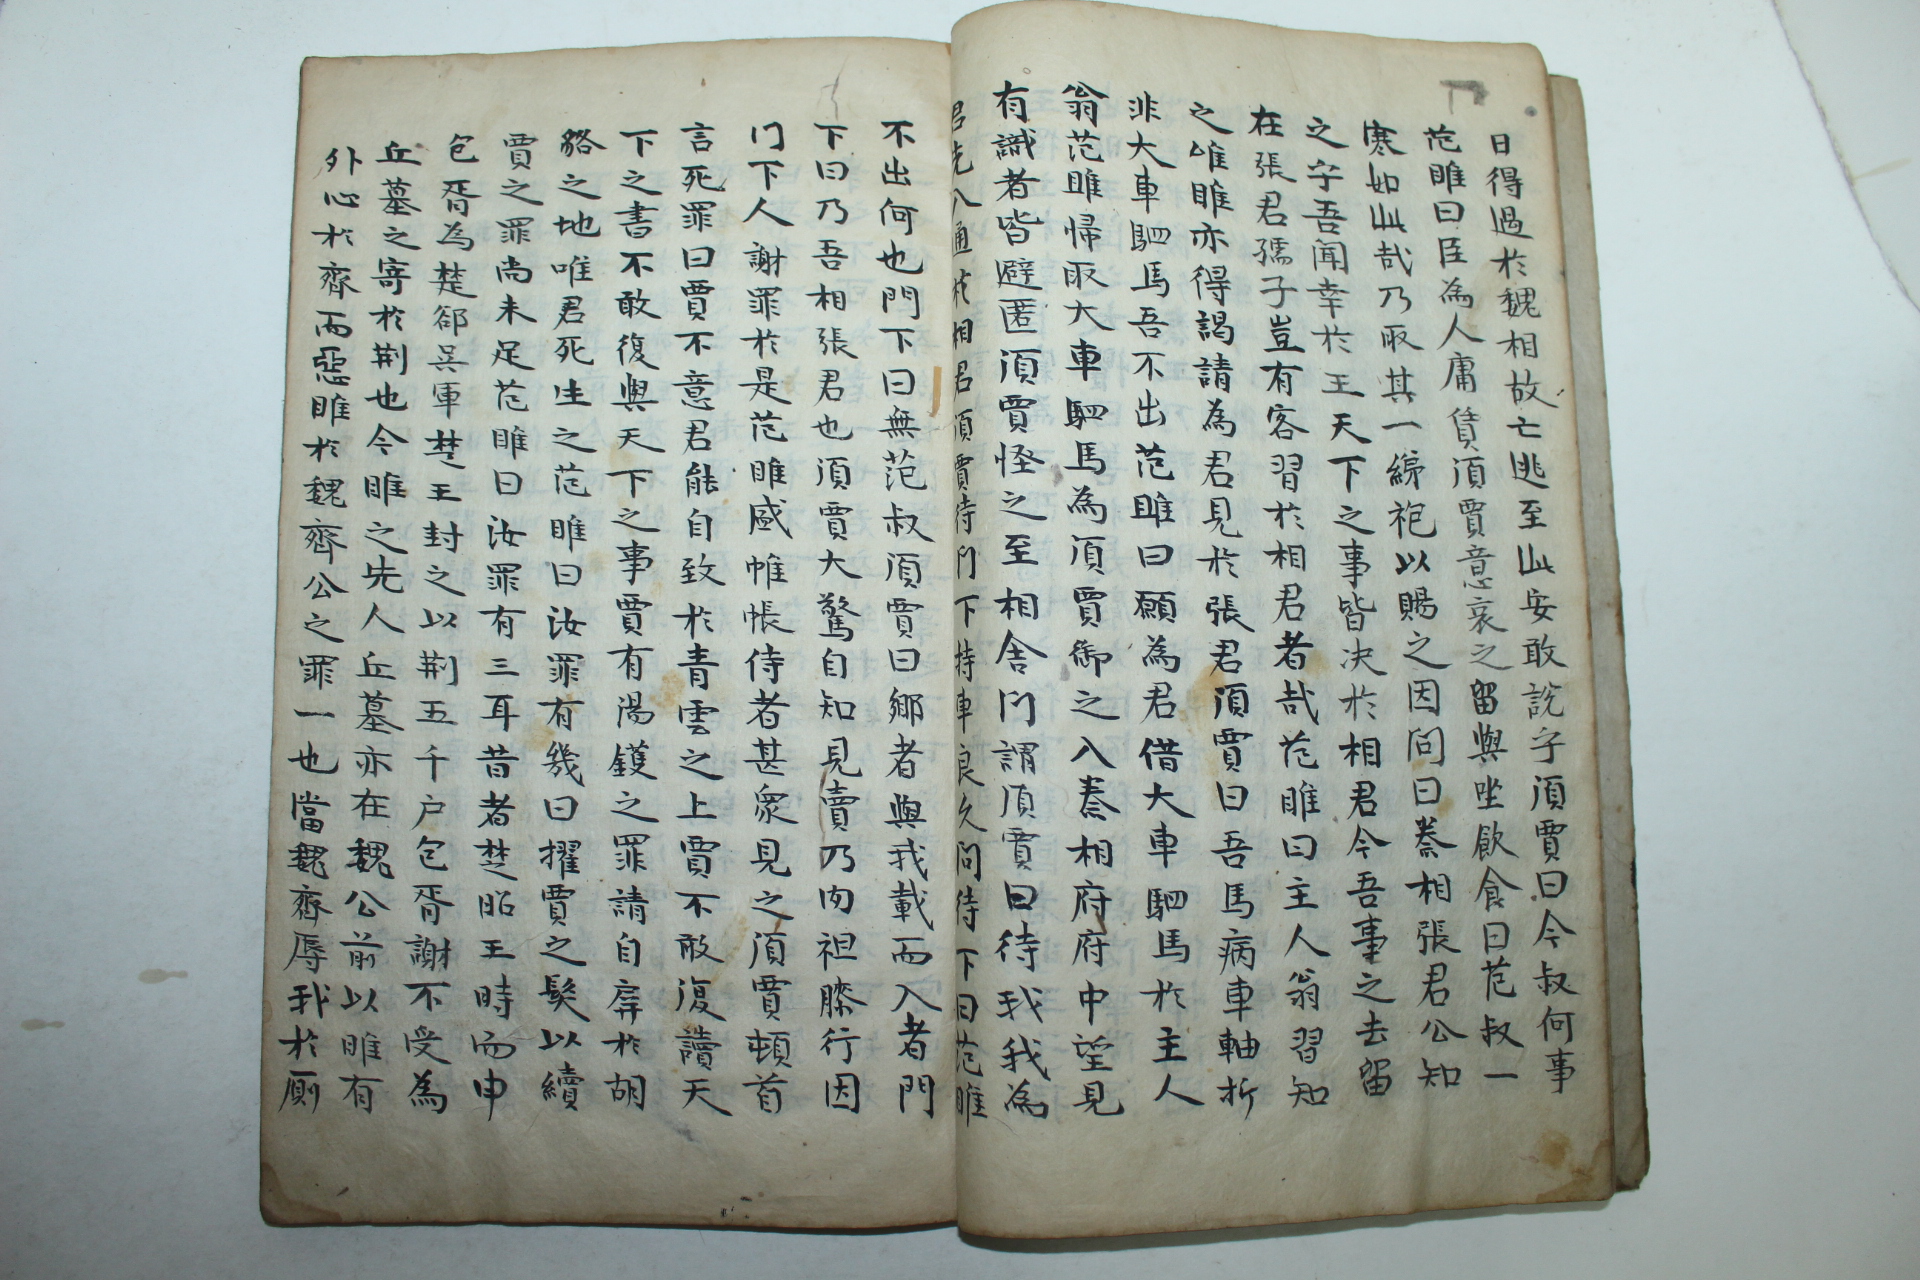 日得過於魏相故亡逃至此安敢說乎須賈曰今叔何事
范睢曰臣為人庸賃須賈意哀之留與坐飲食曰范叔一
寒如此哉乃取其一綈袍以賜之因問曰秦相張君公知
之乎吾聞幸於王天下之事皆决於相君今吾事之去留
在張君孺子豈有客習於相君者哉范睢曰主人翁習知
之唯睢亦得謁請為君見於張君須賈曰吾馬病車軸折
非大車駟馬吾不出范睢曰願為君借大車駟馬於主人
翁范睢帰取大車駟馬為須賈御之入秦相府府中望見
有識者皆避匿須賈怪之至相舍门謂須賈曰待我我為
君先入通於相君須賈待门下持車良久问待下曰范睢
不出何也門下曰無范叔須賈曰鄉者與我載而入者門
下曰乃吾相張君也須賈大驚自知見賣乃肉袒膝行因
门下人謝罪於是范睢盛帷帳侍者甚衆見之須賈頓首
言死罪曰賈不意君能自致於青雲之上賈不敢復讀天
下之書不敢復與天下之事賈有湯鑊之罪請自屏於胡
貉之地唯君死生之范睢曰汝罪有幾曰擢賈之髮以續
賈之罪尚未足范睢曰汝罪有三耳昔者楚昭王時而申
包胥為楚郤吳軍楚王封之以荆五千户包胥謝不受為
丘墓之寄於荆也今睢之先人丘墓亦在魏公前以睢有
外心於齊而惡睢於魏齊公之罪一也當魏齊辱我於厠